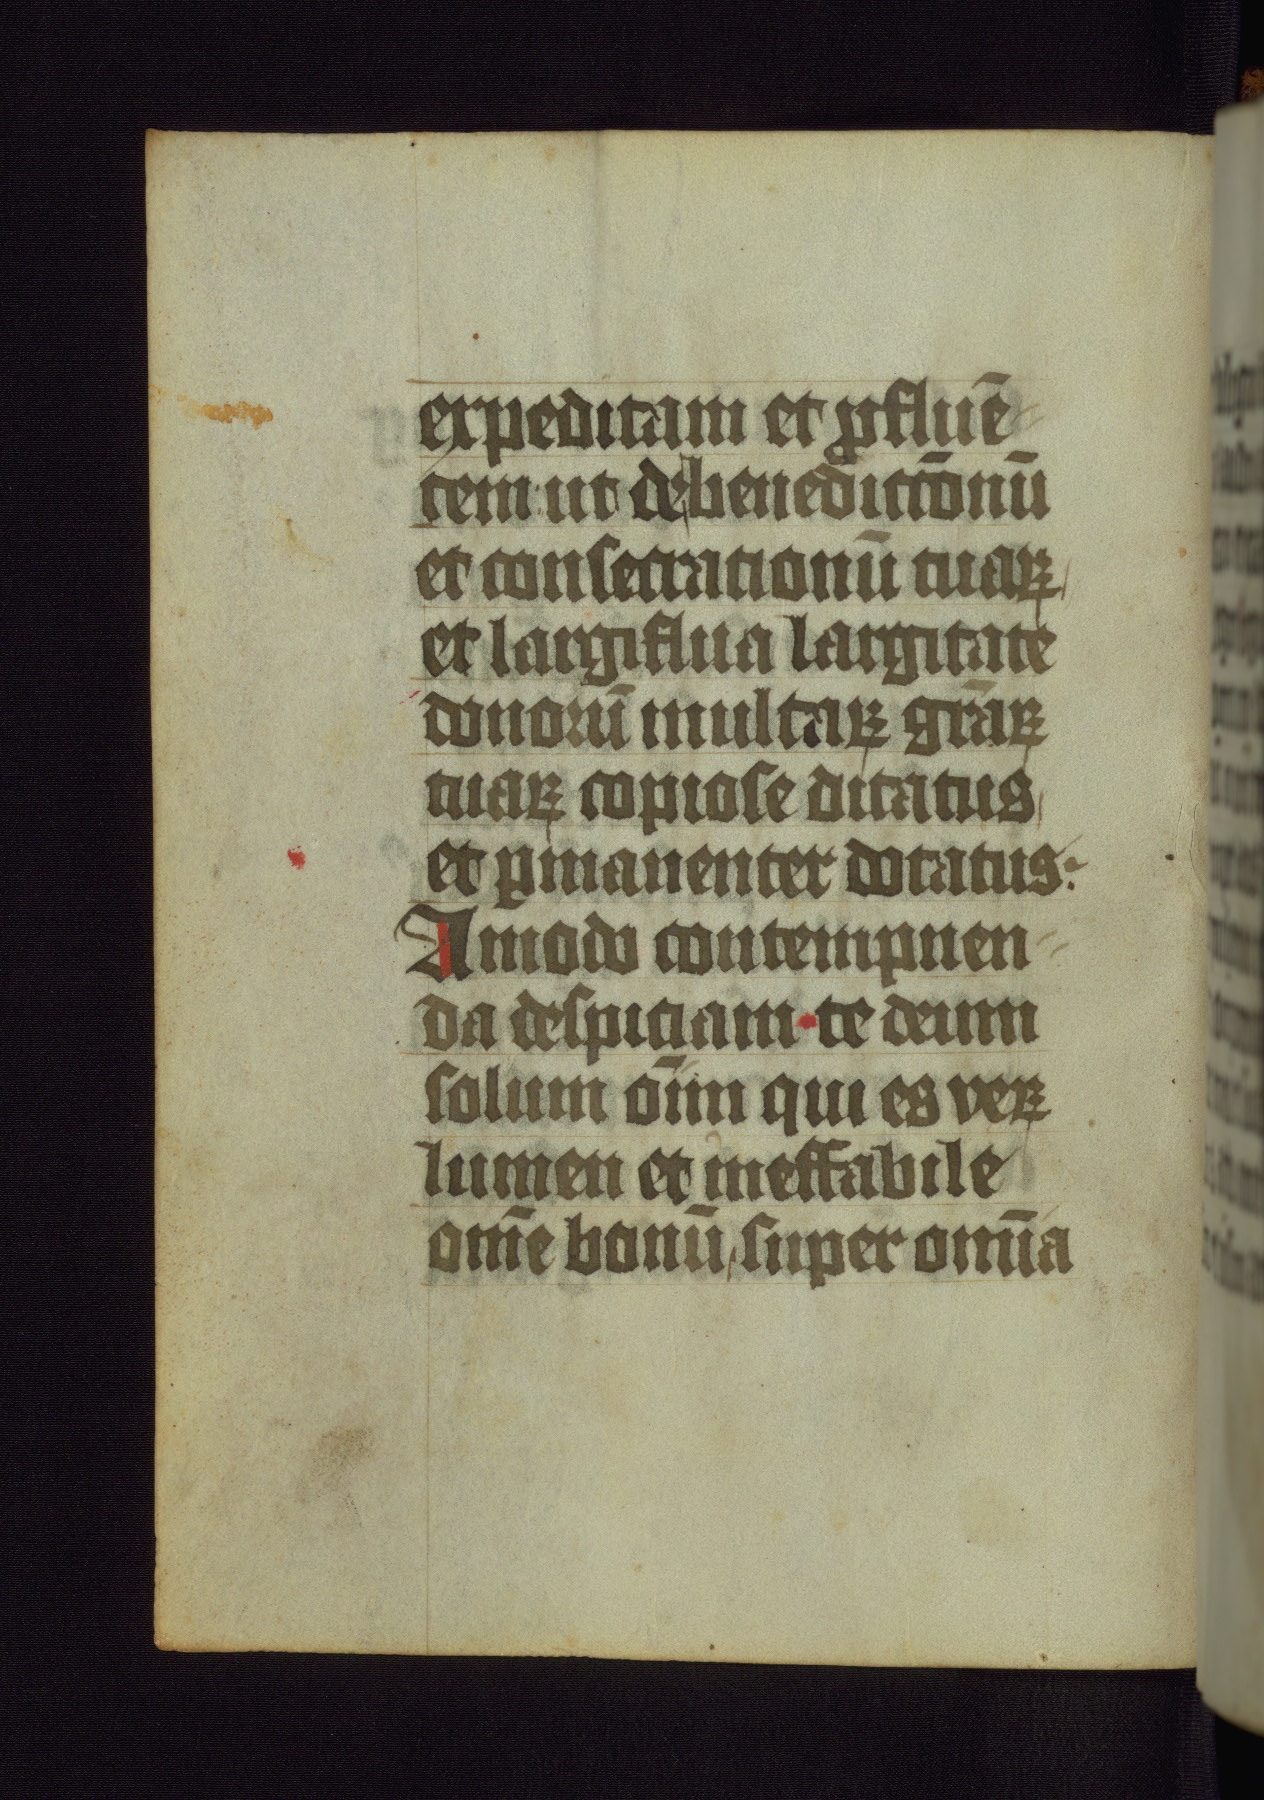 expeditam et ꝓfluē-
tem ut de benedictōnū
et consecrationū tuaꝝ
et largiflua largitate
donorū multaꝝ grāꝝ
tuaꝝ copiose ditatus
et ꝑmanenter dotatus:
Amodo contempnen-
da despiciam te deum
solum oīm qui es veꝝ
lumen et ineffabile
om̄e bonū super omīa